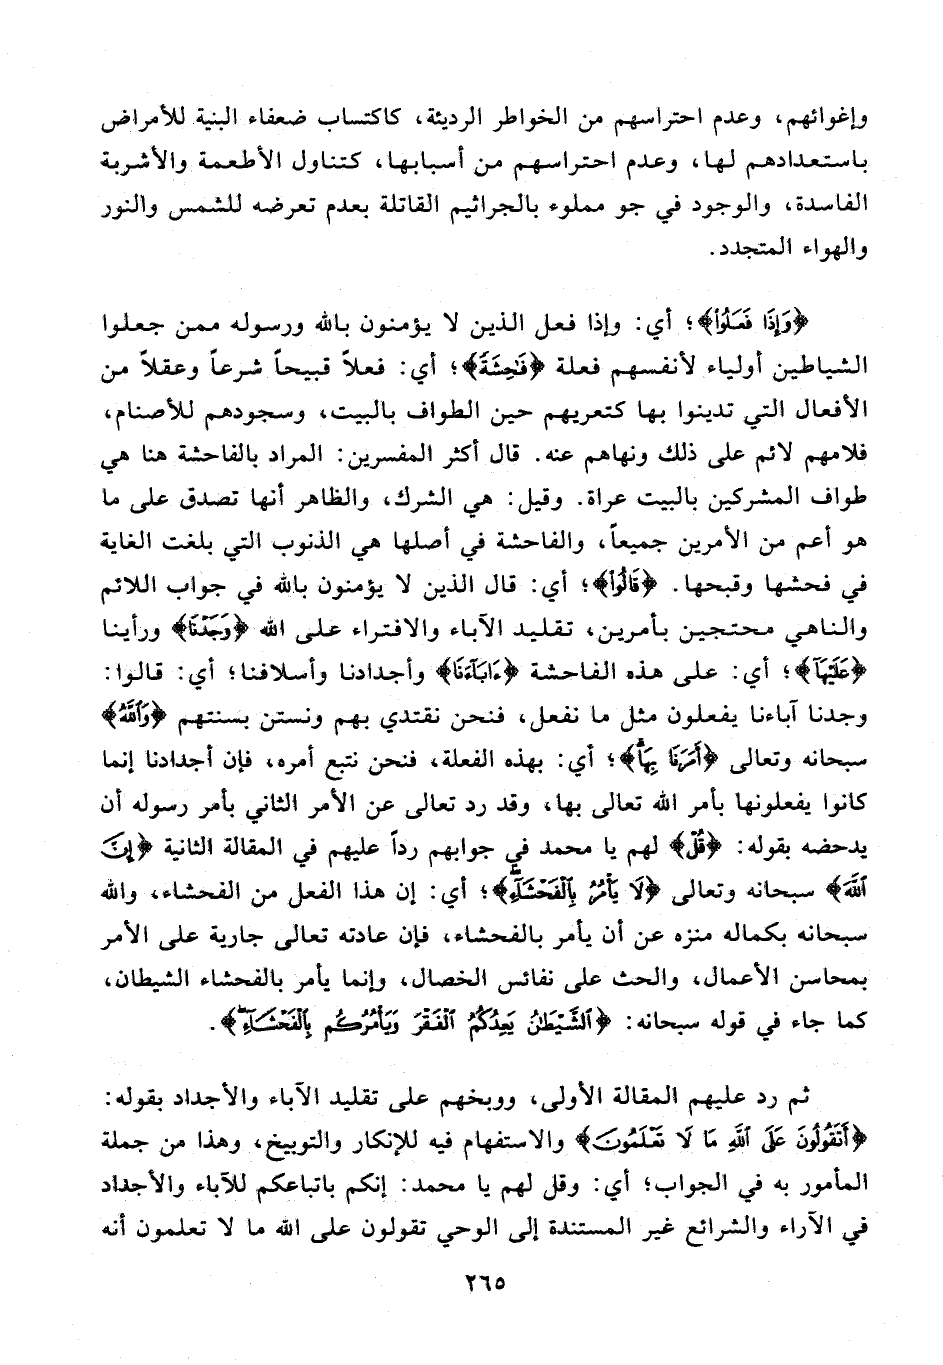 وإغوائهم، وعدم احتراسهم من الخواطر الرديئة، كاكتساب ضعفاء البنية للأمراض
باستعدادهم لها، وعدم احتراسهم من أسبابها، كتناول الأطعمة والأشربة
الفاسدة، والوجود في جو مملوء بالجراثيم القاتلة بعدم تعرضه للشمس والنور
والهواء المتجدد.
﴿وَإِذَا فَعَلُوا۟﴾؛ أي: وإذا فعل الذين لا يؤمنون بالله ورسوله ممن جعلوا
الشياطين أولياء لأنفسهم فعلة ﴿فَٰحِشَةً﴾؛ أي: فعلاً قبيحاً شرعاً وعقلاً من
الأفعال التي تدينوا بها كتعريهم حين الطواف بالبيت، وسجودهم للأصنام،
فلامهم لائم على ذلك ونهاهم عنه. قال أكثر المفسرين: المراد بالفاحشة هنا هي
طواف المشركين بالبيت عراة. وقيل: هي الشرك، والظاهر أنها تصدق على ما
هو أعم من الأمرين جميعاً، والفاحشة في أصلها هي الذنوب التي بلغت الغاية
في فحشها وقبحها. ﴿قَالُوا۟﴾؛ أي: قال الذين لا يؤمنون بالله في جواب اللائم
والناهي محتجين بأمرين، تقليد الآباء والافتراء على الله ﴿وَجَدْنَا﴾ ورأينا
﴿عَلَيْهَآ﴾؛ أي: على هذه الفاحشة ﴿ءَابَآءَنَا﴾ وأجدادنا وأسلافنا؛ أي: قالوا:
وجدنا آباءنا يفعلون مثل ما نفعل، فنحن نقتدي بهم ونستن بسنتهم ﴿وَٱللَّهُ﴾
سبحانه وتعالى ﴿أَمَرَنَا بِهَا﴾؛ أي: بهذه الفعلة، فنحن نتبع أمره، فإن أجدادنا إنما
كانوا يفعلونها بأمر الله تعالى بها، وقد رد تعالى عن الأمر الثاني بأمر رسوله أن
يدحضه بقوله: ﴿قُلْ﴾ لهم يا محمد في جوابهم رداً عليهم في المقالة الثانية ﴿إِنَّ
ٱللَّهَ﴾ سبحانه وتعالى ﴿لَا يَأْمُرُ بِٱلْفَحْشَآءِ﴾؛ أي: إن هذا الفعل من الفحشاء، والله
سبحانه بكماله منزه عن أن يأمر بالفحشاء، فإن عادته تعالى جارية على الأمر
بمحاسن الأعمال، والحث على نفائس الخصال، وإنما يأمر بالفحشاء الشيطان،
كما جاء في قوله سبحانه: ﴿ٱلشَّيْطَٰنُ يَعِدُكُمُ ٱلْفَقْرَ وَيَأْمُرُكُم بِٱلْفَحْشَآءِ﴾.
ثم رد عليهم المقالة الأولى، ووبخهم على تقليد الآباء والأجداد بقوله:
﴿أَتَقُولُونَ عَلَى ٱللَّهِ مَا لَا تَعْلَمُونَ﴾ والاستفهام فيه للإنكار والتوبيخ، وهذا من جملة
المأمور به في الجواب؛ أي: وقل لهم يا محمد: إنكم باتباعكم للآباء والأجداد
في الآراء والشرائع غير المستندة إلى الوحي تقولون على الله ما لا تعلمون أنه
٢٦٥